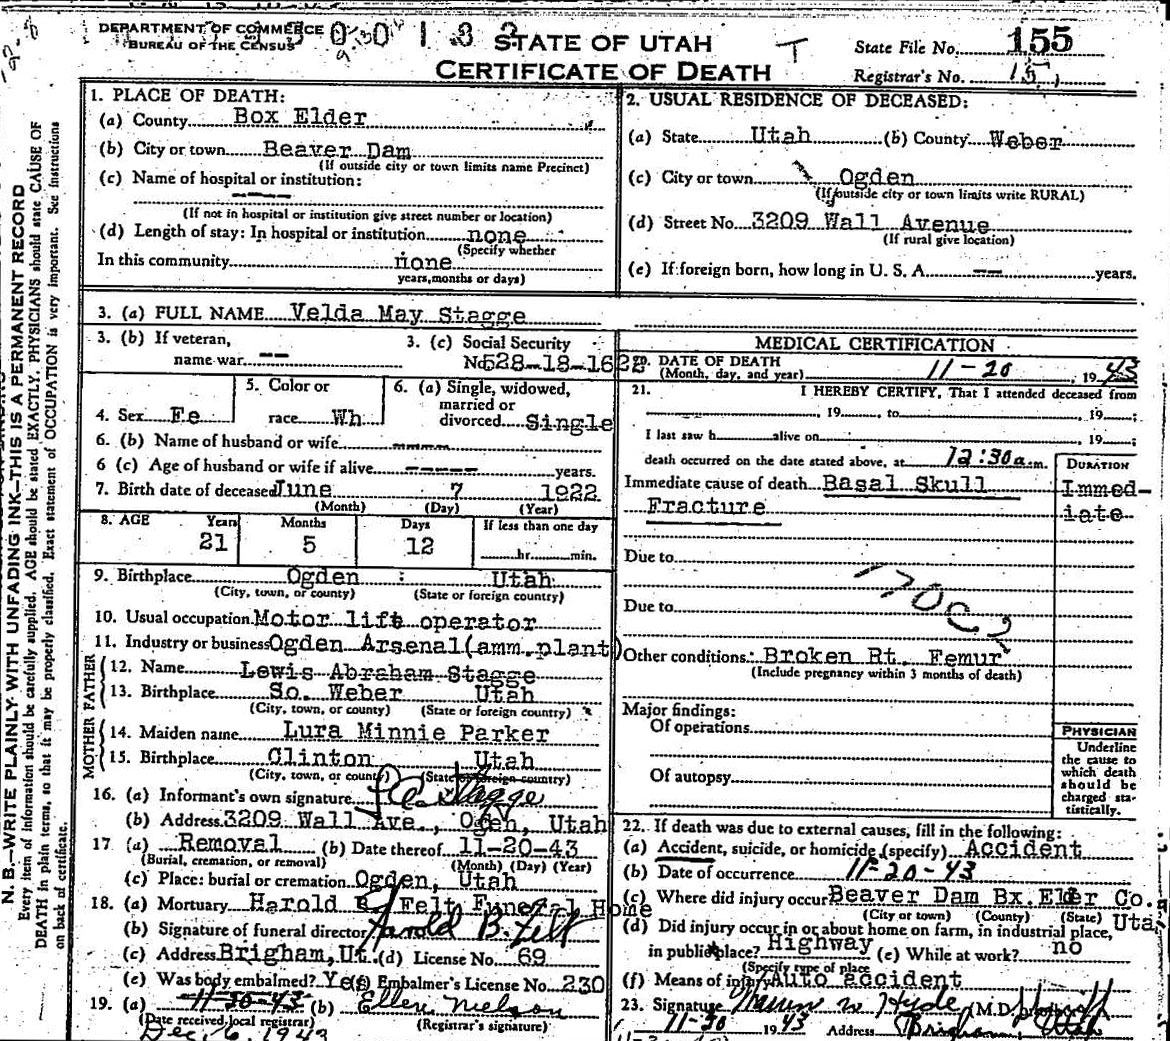 DEPARTMENT OF COMMERCE
BUREAU OF THE CENSUS
STATE OF UTAH
CERTIFICATE OF DEATH
State File No. 155
Registrar's No. 151
N. B.—WRITE PLAINLY WITH UNFADING INK—THIS IS A PERMANENT RECORD
Every item of information should be carefully supplied. AGE should be stated EXACTLY. PHYSICIANS should state CAUSE OF
DEATH in plain terms, so that it may be properly classified. Exact statement of OCCUPATION is very important. See instructions
on back of certificate.
1. PLACE OF DEATH:
(a) County Box Elder
(b) City or town Beaver Dam
(If outside city or town limits name Precinct)
(c) Name of hospital or institution:
(If not in hospital or institution give street number or location)
(d) Length of stay: In hospital or institution none
(Specify whether
In this community none
years, months or days)
2. USUAL RESIDENCE OF DECEASED:
(a) State Utah (b) County Weber
(c) City or town Ogden
(If outside city or town limits write RURAL)
(d) Street No. 3209 Wall Avenue
(If rural give location)
(e) If foreign born, how long in U. S. A. -- years.
3. (a) FULL NAME Velda May Stagge
3. (b) If veteran, 3. (c) Social Security
name war -- No. 528-18-1622
4. Sex Fe
5. Color or
race Wh
6. (a) Single, widowed,
married or
divorced Single
6. (b) Name of husband or wife ----
6 (c) Age of husband or wife if alive ----- years.
7. Birth date of deceased June 7 1922
(Month) (Day) (Year)
8. AGE Years Months Days If less than one day
21 5 12 hr. min.
9. Birthplace Ogden : Utah
(City, town, or county) (State or foreign country)
10. Usual occupation Motor lift operator
11. Industry or business Ogden Arsenal(amm.plant)
FATHER
12. Name Lewis Abraham Stagge
13. Birthplace So. Weber Utah
(City, town, or county) (State or foreign country)
MOTHER
14. Maiden name Lura Minnie Parker
15. Birthplace Clinton Utah
(City, town, or county) (State or foreign country)
16. (a) Informant's own signature Stagge
(b) Address 3209 Wall Ave., Ogen, Utah
17 (a) Removal (b) Date thereof 11-20-43
(Burial, cremation, or removal) (Month) (Day) (Year)
(c) Place: burial or cremation Ogden, Utah
18. (a) Mortuary Harold B. Felt Funeral Home
(b) Signature of funeral director Harold B. Felt
(c) Address Brigham, Ut. (d) License No. 69
(e) Was body embalmed? Yes (f) Embalmer's License No. 230
19. (a) 11-30-43 (b) Ellen Nielson
(Date received local registrar) (Registrar's signature)
Dec. 6, 1943
MEDICAL CERTIFICATION
20. DATE OF DEATH
(Month, day, and year) 11-20, 1943
21. I HEREBY CERTIFY, That I attended deceased from
, 19 , to , 19 ;
I last saw h alive on , 19 ;
death occurred on the date stated above, at 12:30a.m.
DURATION
Immediate cause of death Basal Skull Immed-
Fracture iate
Due to
170c2
Due to
Other conditions: Broken Rt. Femur
(Include pregnancy within 3 months of death)
Major findings:
Of operations
Of autopsy
PHYSICIAN
Underline
the cause to
which death
should be
charged sta-
tistically.
22. If death was due to external causes, fill in the following:
(a) Accident, suicide, or homicide (specify) Accident
(b) Date of occurrence 11-20-43
(c) Where did injury occur Beaver Dam Bx.Elder Co.
(City or town) (County) (State) Utah
(d) Did injury occur in or about home on farm, in industrial place,
in public place? Highway (e) While at work? no
(Specify type of place
(f) Means of injury Auto accident
23. Signature Warren W Hyde (M.D. Sheriff
11-30 1943 Address Brigham, Utah